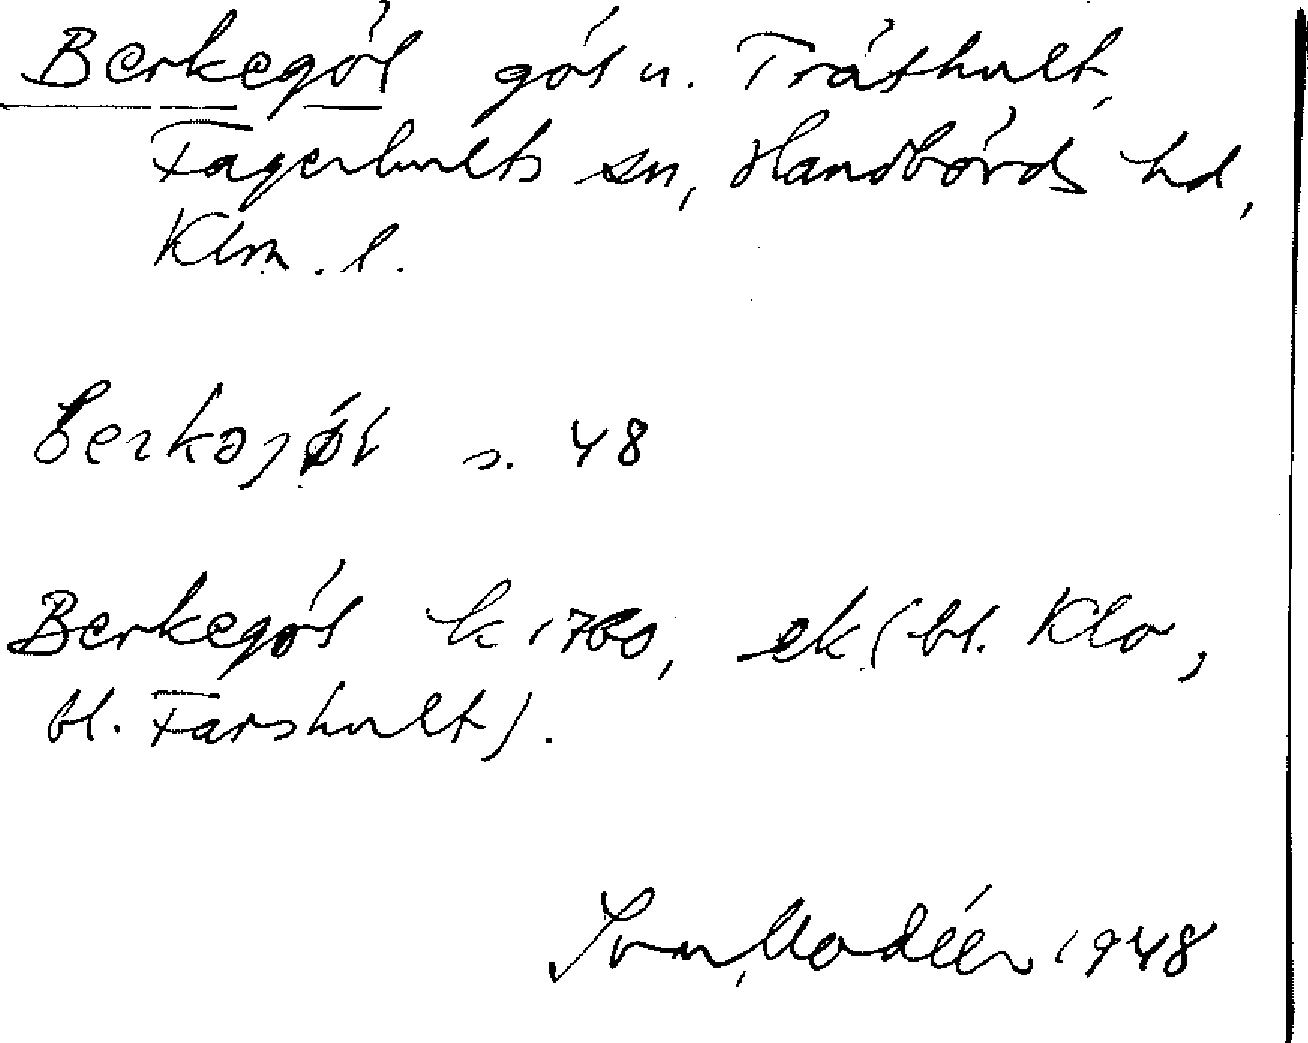 Berkegöl göl u. Tråthult,
Fagerhults sn, Handbörds hd,
Klm. l.
berkəjøl s. 48
Berkegöl k 1760, ek (bl. Klo,
bl. Farshult).
Ivar Modéer 1948